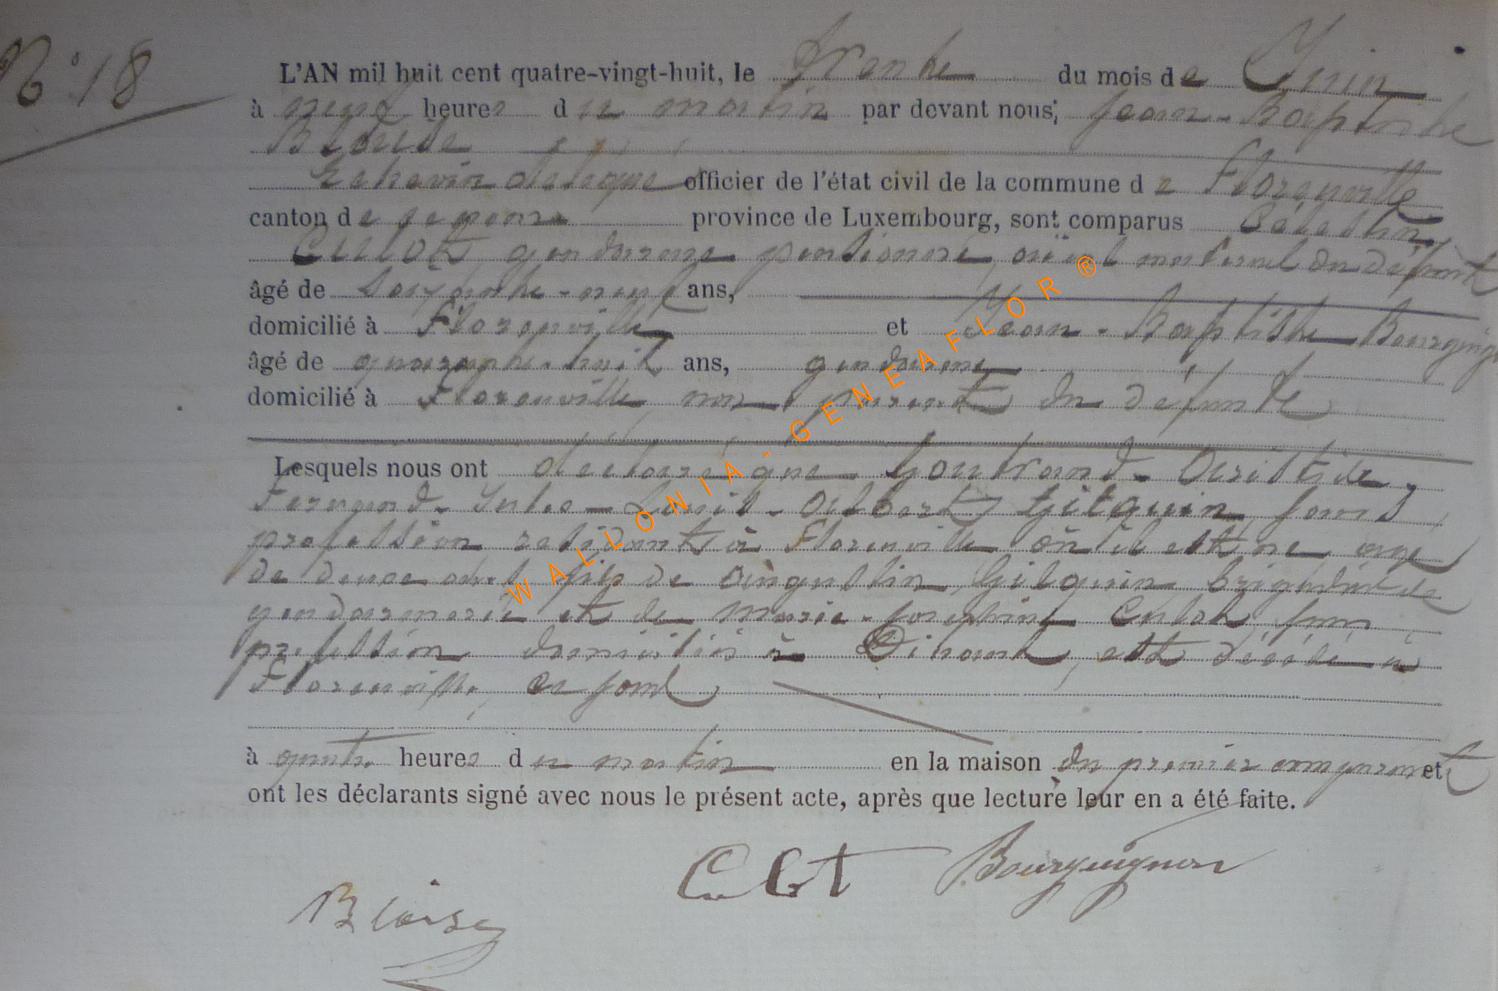 N° 18
L'AN mil huit cent quatre-vingt-huit, le trente du mois de Juin
à neuf heures du matin par devant nous; Jean-Baptiste
Blaise
Echevin délégué officier de l'état civil de la commune de Florenville
canton de province de Luxembourg, sont comparus Célestin
Culot gendarme pensionné, maternel du défunt
âgé de soixante-neuf ans,
domicilié à Florenville et Jean-Baptiste Bourguignon
âgé de quarante-huit ans, gendarme
domicilié à Florenville, non parent du défunt
Lesquels nous ont déclaré que Gontrand-Aristide,
Fernand-Jules-Louis-Albert Gilquin, sans
profession résidant à Florenville où il est né, âgé
de deux ans fils de Augustin Gilquin brigadier de
gendarmerie et de Marie-Joséphine Culot, sans
profession domiciliés à Dinant, est décédé à
Florenville, ce jour
à quatre heures du matin en la maison du premier comparant et
ont les déclarants signé avec nous le présent acte, après que lecture leur en a été faite.
Culot Bourguignon
Blaise
WALLONIA-GENEAFLOR®